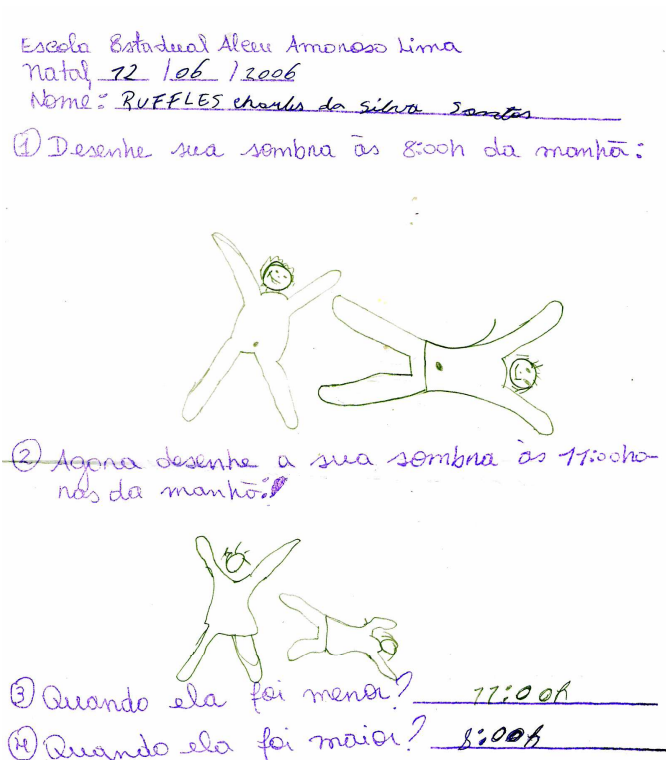 Escola Estadual Alceu Amoroso Lima
Natal, 12 / 06 / 2006
Nome: RUFFLES Charles da Silva Santos
① Desenhe sua sombra às 8:00h da manhã:
② Agora desenhe a sua sombra às 11:00ho-
ras da manhã:
③ Quando ela foi menor? 11:00h
④ Quando ela foi maior? 8:00h